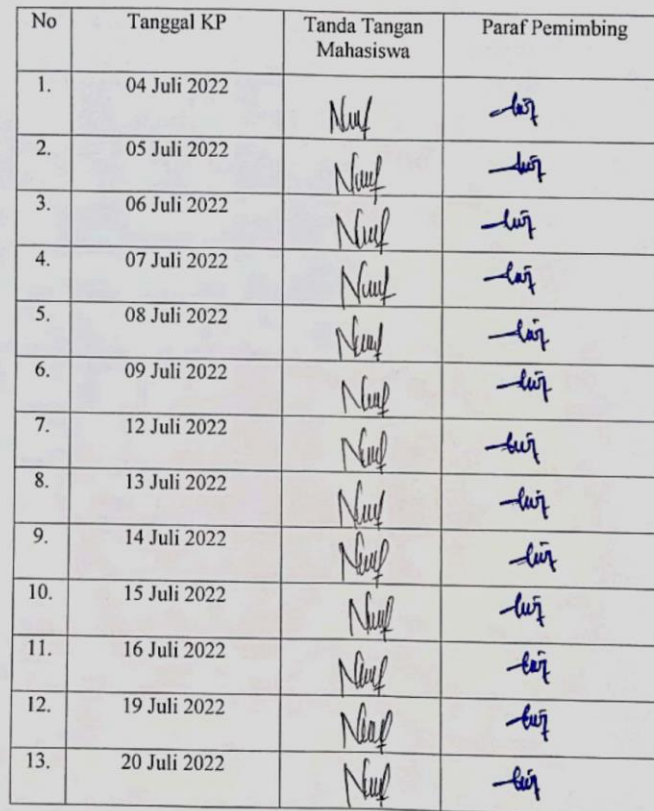 No Tanggal KP Tanda Tangan Mahasiswa Paraf Pemimbing
1. 04 Juli 2022
2. 05 Juli 2022
3. 06 Juli 2022
4. 07 Juli 2022
5. 08 Juli 2022
6. 09 Juli 2022
7. 12 Juli 2022
8. 13 Juli 2022
9. 14 Juli 2022
10. 15 Juli 2022
11. 16 Juli 2022
12. 19 Juli 2022
13. 20 Juli 2022